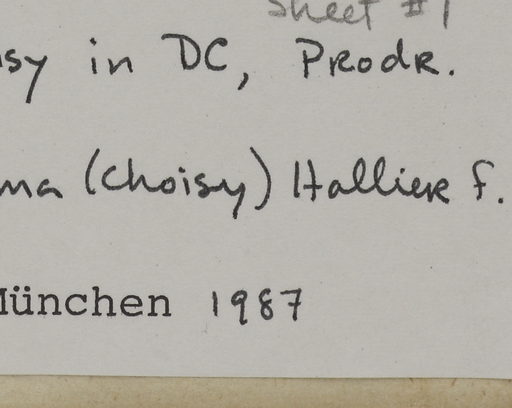 Sheet #1
sy in DC, Prodr.
ma (Choisy) Hallier f.
München 1987